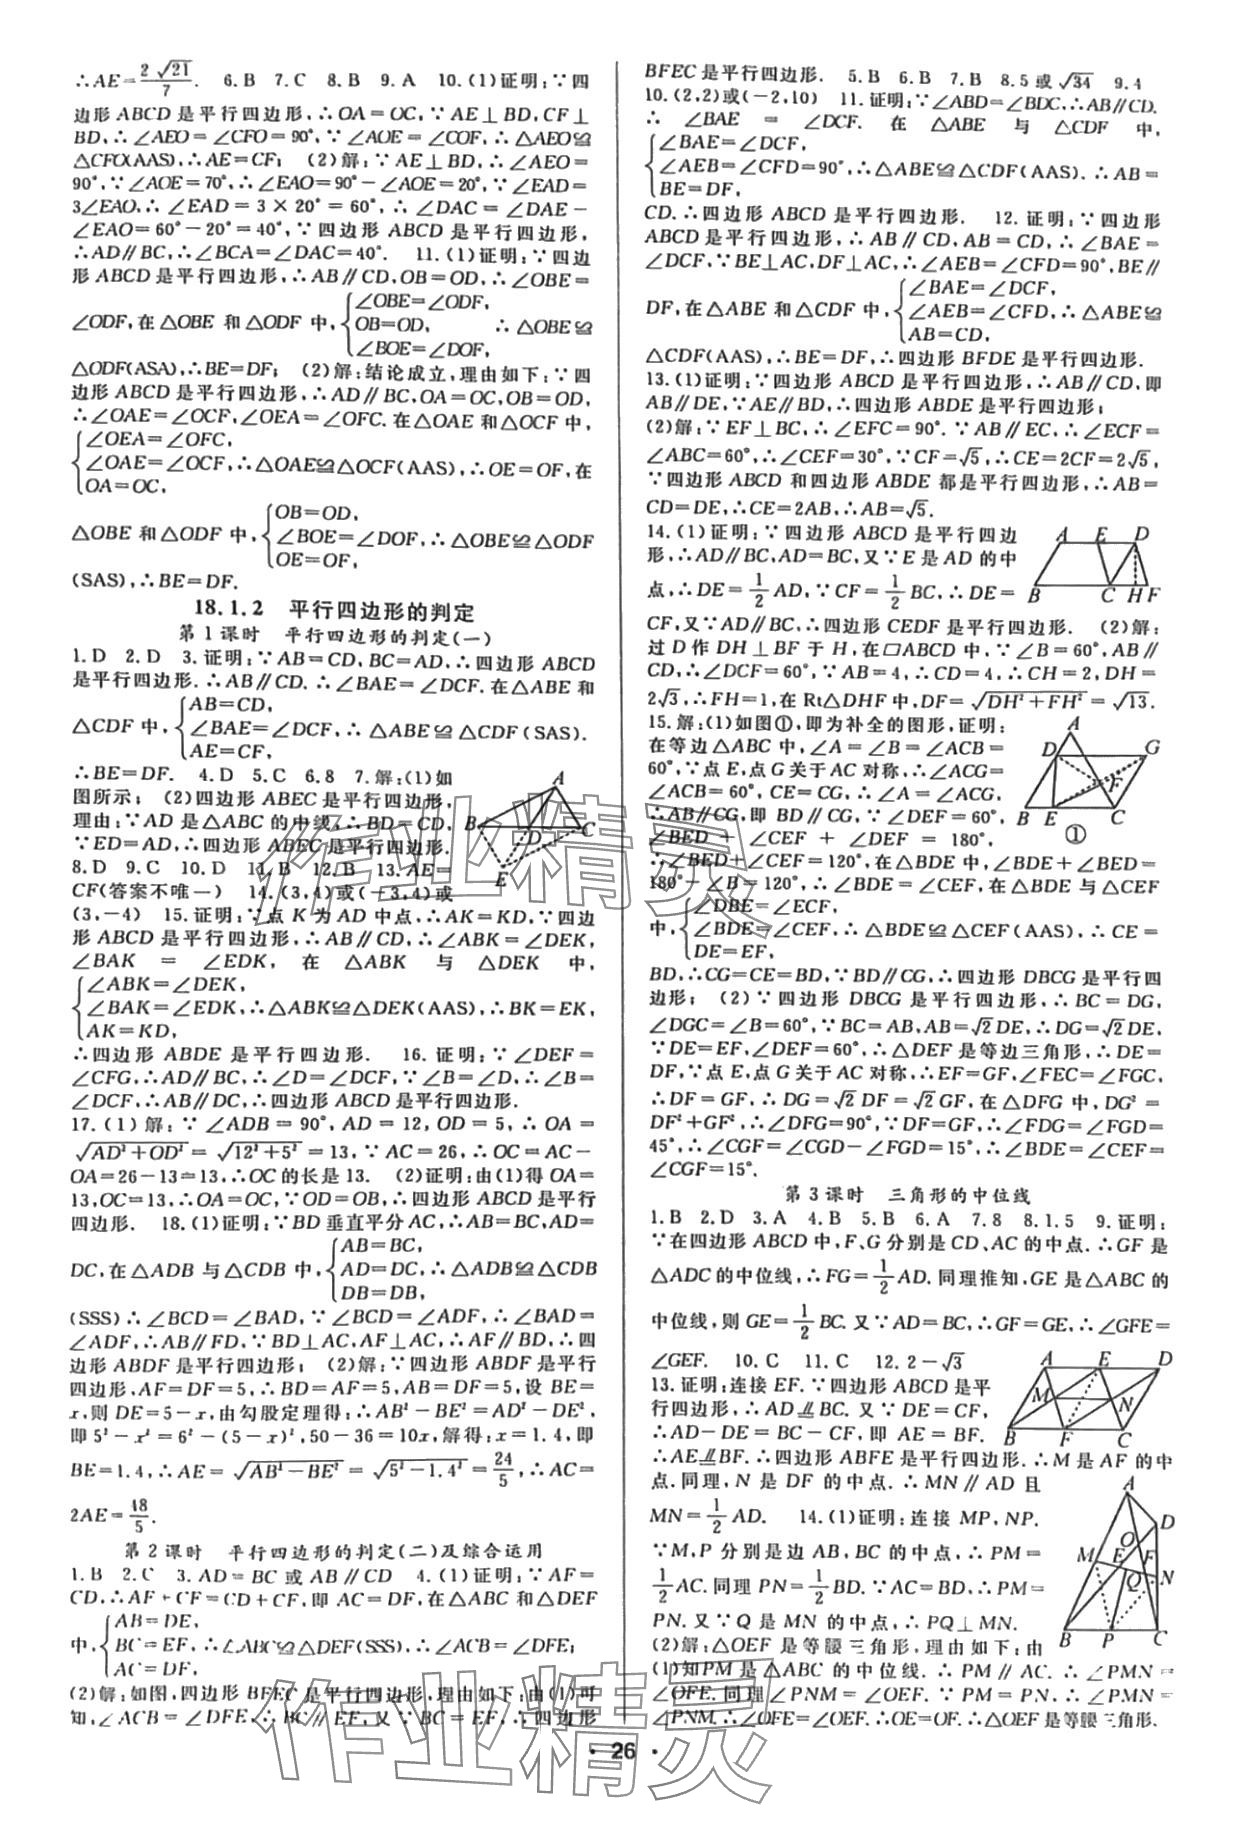 ∴AE=2√21/7. 6.B 7.C 8.B 9.A 10.(1)证明:∵四
边形ABCD是平行四边形,∴OA=OC,∵AE⊥BD,CF⊥
BD,∴∠AEO=∠CFO=90°,∵∠AOE=∠COF,∴△AEO≌
△CFO(AAS),∴AE=CF; (2)解:∵AE⊥BD,∴∠AEO=
90°,∵∠AOE=70°,∴∠EAO=90°-∠AOE=20°,∵∠EAD=
3∠EAO,∴∠EAD=3×20°=60°,∴∠DAC=∠DAE-
∠EAO=60°-20°=40°,∵四边形ABCD是平行四边形,
∴AD∥BC,∴∠BCA=∠DAC=40°. 11.(1)证明:∵四边
形ABCD是平行四边形,∴AB∥CD,OB=OD,∴∠OBE=
∠ODF,在△OBE和△ODF中,{∠OBE=∠ODF, OB=OD, ∠BOE=∠DOF, ∴△OBE≌
△ODF(ASA),∴BE=DF; (2)解:结论成立,理由如下:∵四
边形ABCD是平行四边形,∴AD∥BC,OA=OC,OB=OD,
∴∠OAE=∠OCF,∠OEA=∠OFC.在△OAE和△OCF中,
{∠OEA=∠OFC,
∠OAE=∠OCF,∴△OAE≌△OCF(AAS),∴OE=OF,在
OA=OC,
△OBE和△ODF中,{OB=OD, ∠BOE=∠DOF, OE=OF, ∴△OBE≌△ODF
(SAS),∴BE=DF.
18.1.2 平行四边形的判定
第1课时 平行四边形的判定(一)
1.D 2.D 3.证明:∵AB=CD,BC=AD,∴四边形ABCD
是平行四边形.∴AB∥CD.∴∠BAE=∠DCF.在△ABE和
△CDF中,{AB=CD, ∠BAE=∠DCF, AE=CF, ∴△ABE≌△CDF(SAS).
∴BE=DF. 4.D 5.C 6.8 7.解:(1)如
图所示; (2)四边形ABEC是平行四边形,
理由:∵AD是△ABC的中线,∴BD=CD,
∵ED=AD,∴四边形ABEC是平行四边形.
A
B
D
C
E
8.D 9.C 10.D 11.B 12.B 13.AE=
CF(答案不唯一) 14.(3,4)或(-3,4)或
(3,-4) 15.证明:∵点K为AD中点,∴AK=KD,∵四边
形ABCD是平行四边形,∴AB∥CD,∴∠ABK=∠DEK,
∠BAK=∠EDK,在△ABK与△DEK中,
{∠ABK=∠DEK,
∠BAK=∠EDK,∴△ABK≌△DEK(AAS),∴BK=EK,
AK=KD,
∴四边形ABDE是平行四边形. 16.证明:∵∠DEF=
∠CFG,∴AD∥BC,∴∠D=∠DCF,∵∠B=∠D,∴∠B=
∠DCF,∴AB∥DC,∴四边形ABCD是平行四边形.
17.(1)解:∵∠ADB=90°,AD=12,OD=5,∴OA=
√AD²+OD²=√12²+5²=13,∵AC=26,∴OC=AC-
OA=26-13=13,∴OC的长是13. (2)证明:由(1)得OA=
13,OC=13,∴OA=OC,∵OD=OB,∴四边形ABCD是平行
四边形. 18.(1)证明:∵BD垂直平分AC,∴AB=BC,AD=
DC,在△ADB与△CDB中,{AB=BC, AD=DC, DB=DB, ∴△ADB≌△CDB
(SSS)∴∠BCD=∠BAD,∵∠BCD=∠ADF,∴∠BAD=
∠ADF,∴AB∥FD,∵BD⊥AC,AF⊥AC,∴AF∥BD,∴四
边形ABDF是平行四边形; (2)解:∵四边形ABDF是平行
四边形,AF=DF=5,∴BD=AF=5,AB=DF=5,设BE=
x,则DE=5-x,由勾股定理得:∴AB²-BE²=AD²-DE²,
即5²-x²=6²-(5-x)²,50-36=10x,解得:x=1.4,即
BE=1.4,∴AE=√AB²-BE²=√5²-1.4²=24/5,∴AC=
2AE=48/5.
第2课时 平行四边形的判定(二)及综合运用
1.B 2.C 3.AD=BC或AB∥CD 4.(1)证明:∵AF=
CD,∴AF+CF=CD+CF,即AC=DF,在△ABC和△DEF
中,{AB=DE, BC=EF, AC=DF, ∴△ABC≌△DEF(SSS),∴∠ACB=∠DFE;
(2)解:如图,四边形BFEC是平行四边形,理由如下:由(1)可
知,∠ACB=∠DFE,∴BC∥EF,又∵BC=EF,∴四边形
BFEC是平行四边形. 5.B 6.B 7.B 8.5或√34 9.4
10.(2,2)或(-2,10) 11.证明:∵∠ABD=∠BDC,∴AB∥CD.
∴∠BAE=∠DCF.在△ABE与△CDF中,
{∠BAE=∠DCF,
∠AEB=∠CFD=90°,∴△ABE≌△CDF(AAS).∴AB=
BE=DF,
CD.∴四边形ABCD是平行四边形. 12.证明:∵四边形
ABCD是平行四边形,∴AB∥CD,AB=CD,∴∠BAE=
∠DCF,∵BE⊥AC,DF⊥AC,∴∠AEB=∠CFD=90°,BE∥
DF,在△ABE和△CDF中,{∠BAE=∠DCF, ∠AEB=∠CFD, AB=CD, ∴△ABE≌
△CDF(AAS),∴BE=DF,∴四边形BFDE是平行四边形.
13.(1)证明:∵四边形ABCD是平行四边形,∴AB∥CD,即
AB∥DE,∵AE∥BD,∴四边形ABDE是平行四边形;
(2)解:∵EF⊥BC,∴∠EFC=90°.∵AB∥EC,∴∠ECF=
∠ABC=60°,∴∠CEF=30°,∵CF=√5,∴CE=2CF=2√5,
∵四边形ABCD和四边形ABDE都是平行四边形,∴AB=
CD=DE,∴CE=2AB,∴AB=√5.
14.(1)证明:∵四边形ABCD是平行四边
形,∴AD∥BC,AD=BC,又∵E是AD的中
点,∴DE=1/2AD,∵CF=1/2BC,∴DE=
A E D
B C H F
CF,又∵AD∥BC,∴四边形CEDF是平行四边形. (2)解:
过D作DH⊥BF于H,在▱ABCD中,∵∠B=60°,AB∥
CD,∴∠DCF=60°,∵AB=4,∴CD=4,∴CH=2,DH=
2√3,∴FH=1,在Rt△DHF中,DF=√DH²+FH²=√13.
15.解:(1)如图①,即为补全的图形,证明:
在等边△ABC中,∠A=∠B=∠ACB=
60°,∵点E,点G关于AC对称,∴∠ACG=
∠ACB=60°,CE=CG,∴∠A=∠ACG,
∴AB∥CG,即BD∥CG,∵∠DEF=60°,
∠BED+∠CEF+∠DEF=180°,
A
D G
F
B E C
①
∴∠BED+∠CEF=120°,在△BDE中,∠BDE+∠BED=
180°-∠B=120°,∴∠BDE=∠CEF,在△BDE与△CEF
中,{∠DBE=∠ECF, ∠BDE=∠CEF, DE=EF, ∴△BDE≌△CEF(AAS),∴CE=
BD,∴CG=CE=BD,∵BD∥CG,∴四边形DBCG是平行四
边形; (2)∵四边形DBCG是平行四边形,∴BC=DG,
∠DGC=∠B=60°,∵BC=AB,AB=√2DE,∴DG=√2DE,
∵DE=EF,∠DEF=60°,∴△DEF是等边三角形,∴DE=
DF,∵点E,点G关于AC对称,∴EF=GF,∠FEC=∠FGC,
∴DF=GF,∴DG=√2DF=√2GF,在△DFG中,DG²=
DF²+GF²,∴∠DFG=90°,∵DF=GF,∴∠FDG=∠FGD=
45°,∴∠CGF=∠CGD-∠FGD=15°,∴∠BDE=∠CEF=
∠CGF=15°.
第3课时 三角形的中位线
1.B 2.D 3.A 4.B 5.B 6.A 7.8 8.1.5 9.证明:
∵在四边形ABCD中,F、G分别是CD、AC的中点.∴GF是
△ADC的中位线,∴FG=1/2AD.同理推知,GE是△ABC的
中位线,则GE=1/2BC.又∵AD=BC,∴GF=GE,∴∠GFE=
∠GEF. 10.C 11.C 12.2-√3
13.证明:连接EF.∵四边形ABCD是平
行四边形,∴AD∥BC.又∵DE=CF,
∴AD-DE=BC-CF,即AE=BF.
A E D
M N
B F C
∴AE∥BF.∴四边形ABFE是平行四边形.∴M是AF的中
点.同理,N是DF的中点.∴MN∥AD且
MN=1/2AD. 14.(1)证明:连接MP,NP.
∵M,P分别是边AB,BC的中点,∴PM=
1/2AC.同理PN=1/2BD.∵AC=BD,∴PM=
PN.又∵Q是MN的中点,∴PQ⊥MN.
A
D
O
M E F
Q N
B P C
(2)解:△OEF是等腰三角形,理由如下:由
(1)知PM是△ABC的中位线.∴PM∥AC.∴∠PMN=
∠OFE.同理∠PNM=∠OEF.∵PM=PN,∴∠PMN=
∠PNM.∴∠OFE=∠OEF.∴OE=OF.∴△OEF是等腰三角形.
· 26 ·
作业精灵
作业精灵